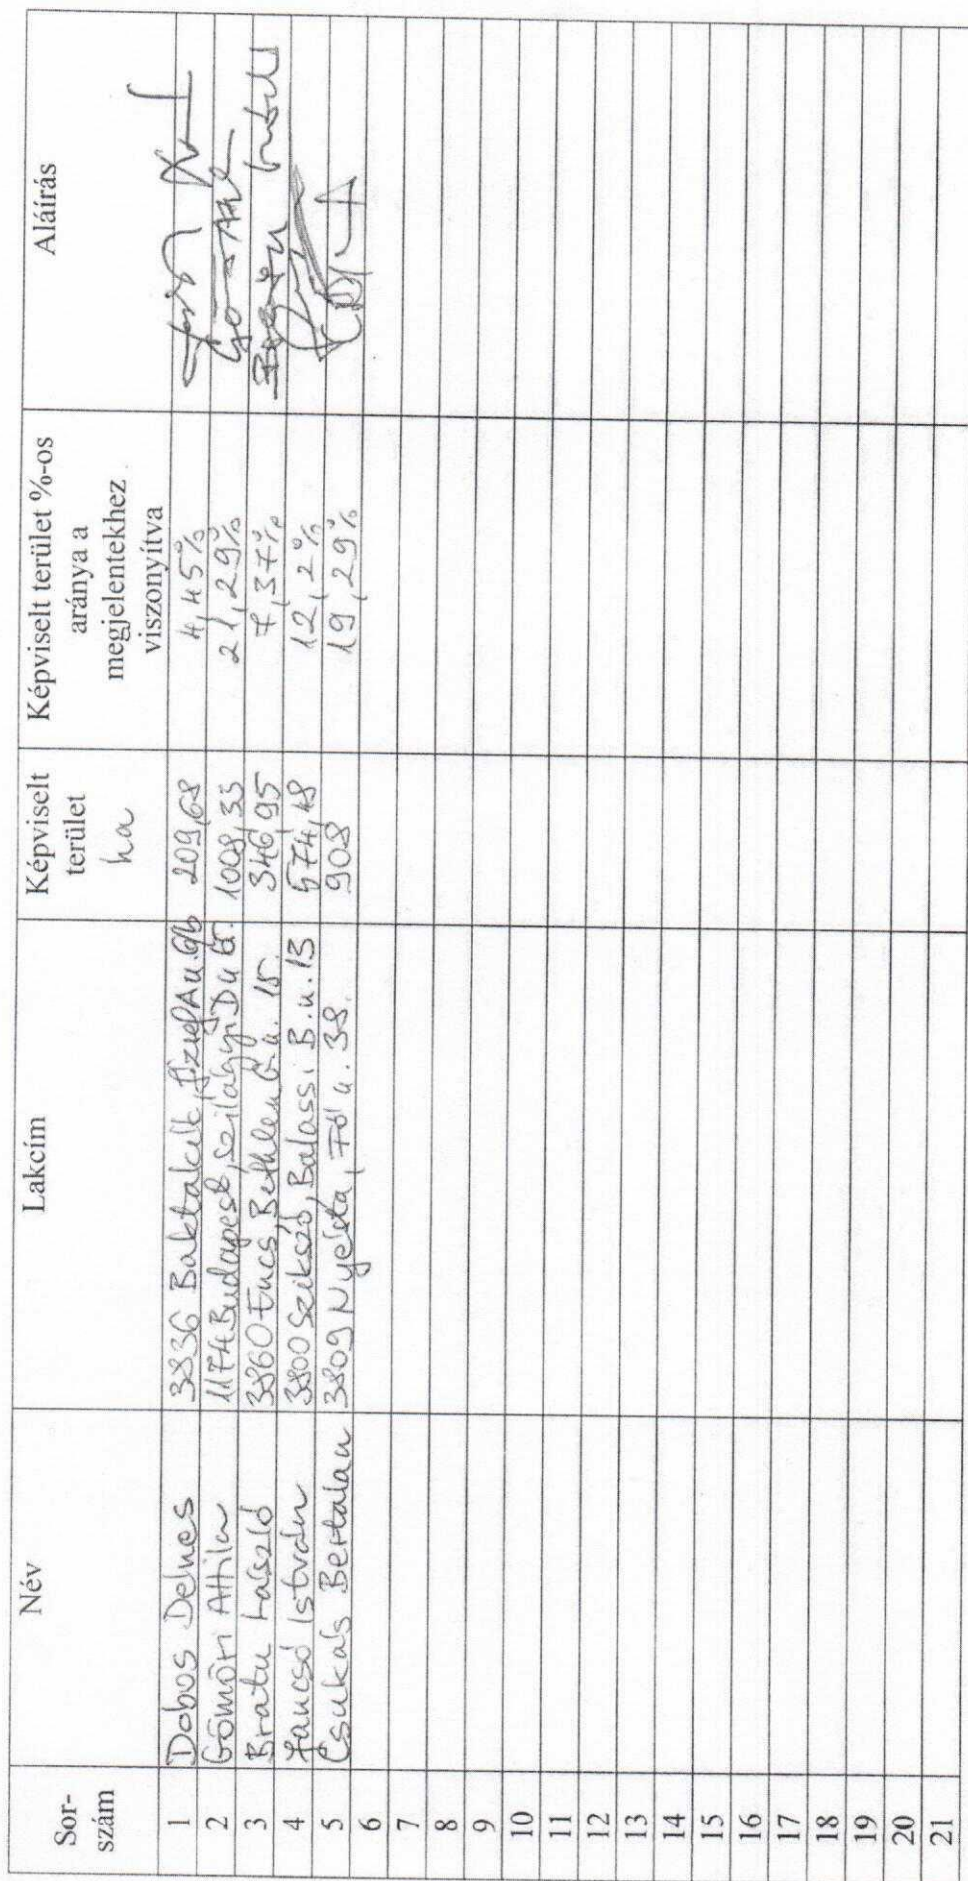 Sor-
szám
Név
Lakcím
Képviselt
terület
ha
Képviselt terület %-os
aránya a
megjelentekhez
viszonyítva
Aláírás
1 Dobos Delnes 3836 Baktakék, József A u. 6/b 209,68 4,45%
2 Gömöri Attila 1174 Budapest, Szilágyi D u 61. 1008,33 21,29%
3 Bratu László 3860 Encs, Bethlen G. u. 15. 346,95 7,37%
4 Jancsó István 3800 Szikszó, Balassi B. u. 13 574,48 12,2%
5 Csukás Bertalan 3809 Nyésta, Fő u. 38. 908 19,29%
6
7
8
9
10
11
12
13
14
15
16
17
18
19
20
21